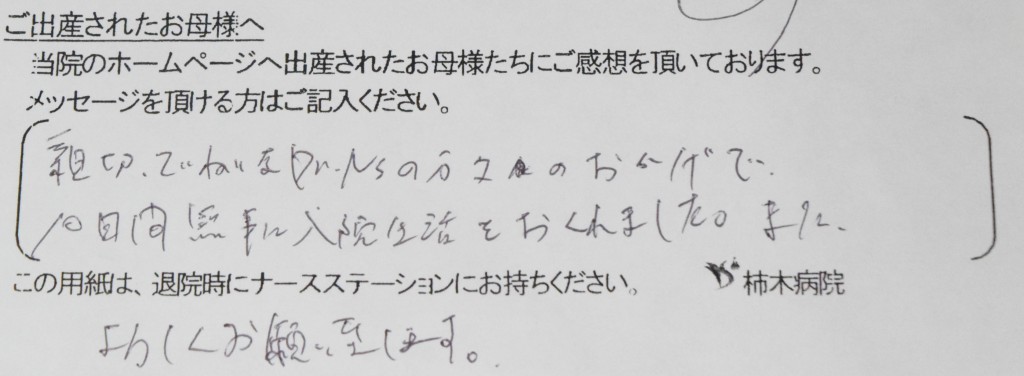 ご出産されたお母様へ
当院のホームページへ出産されたお母様たちにご感想を頂いております。
メッセージを頂ける方はご記入ください。
親切、ていねいなDr.Nsの方々のおかげで
10日間無事に入院生活をおくれました。また、
この用紙は、退院時にナースステーションにお持ちください。 柿木病院
よろしくお願い致します。